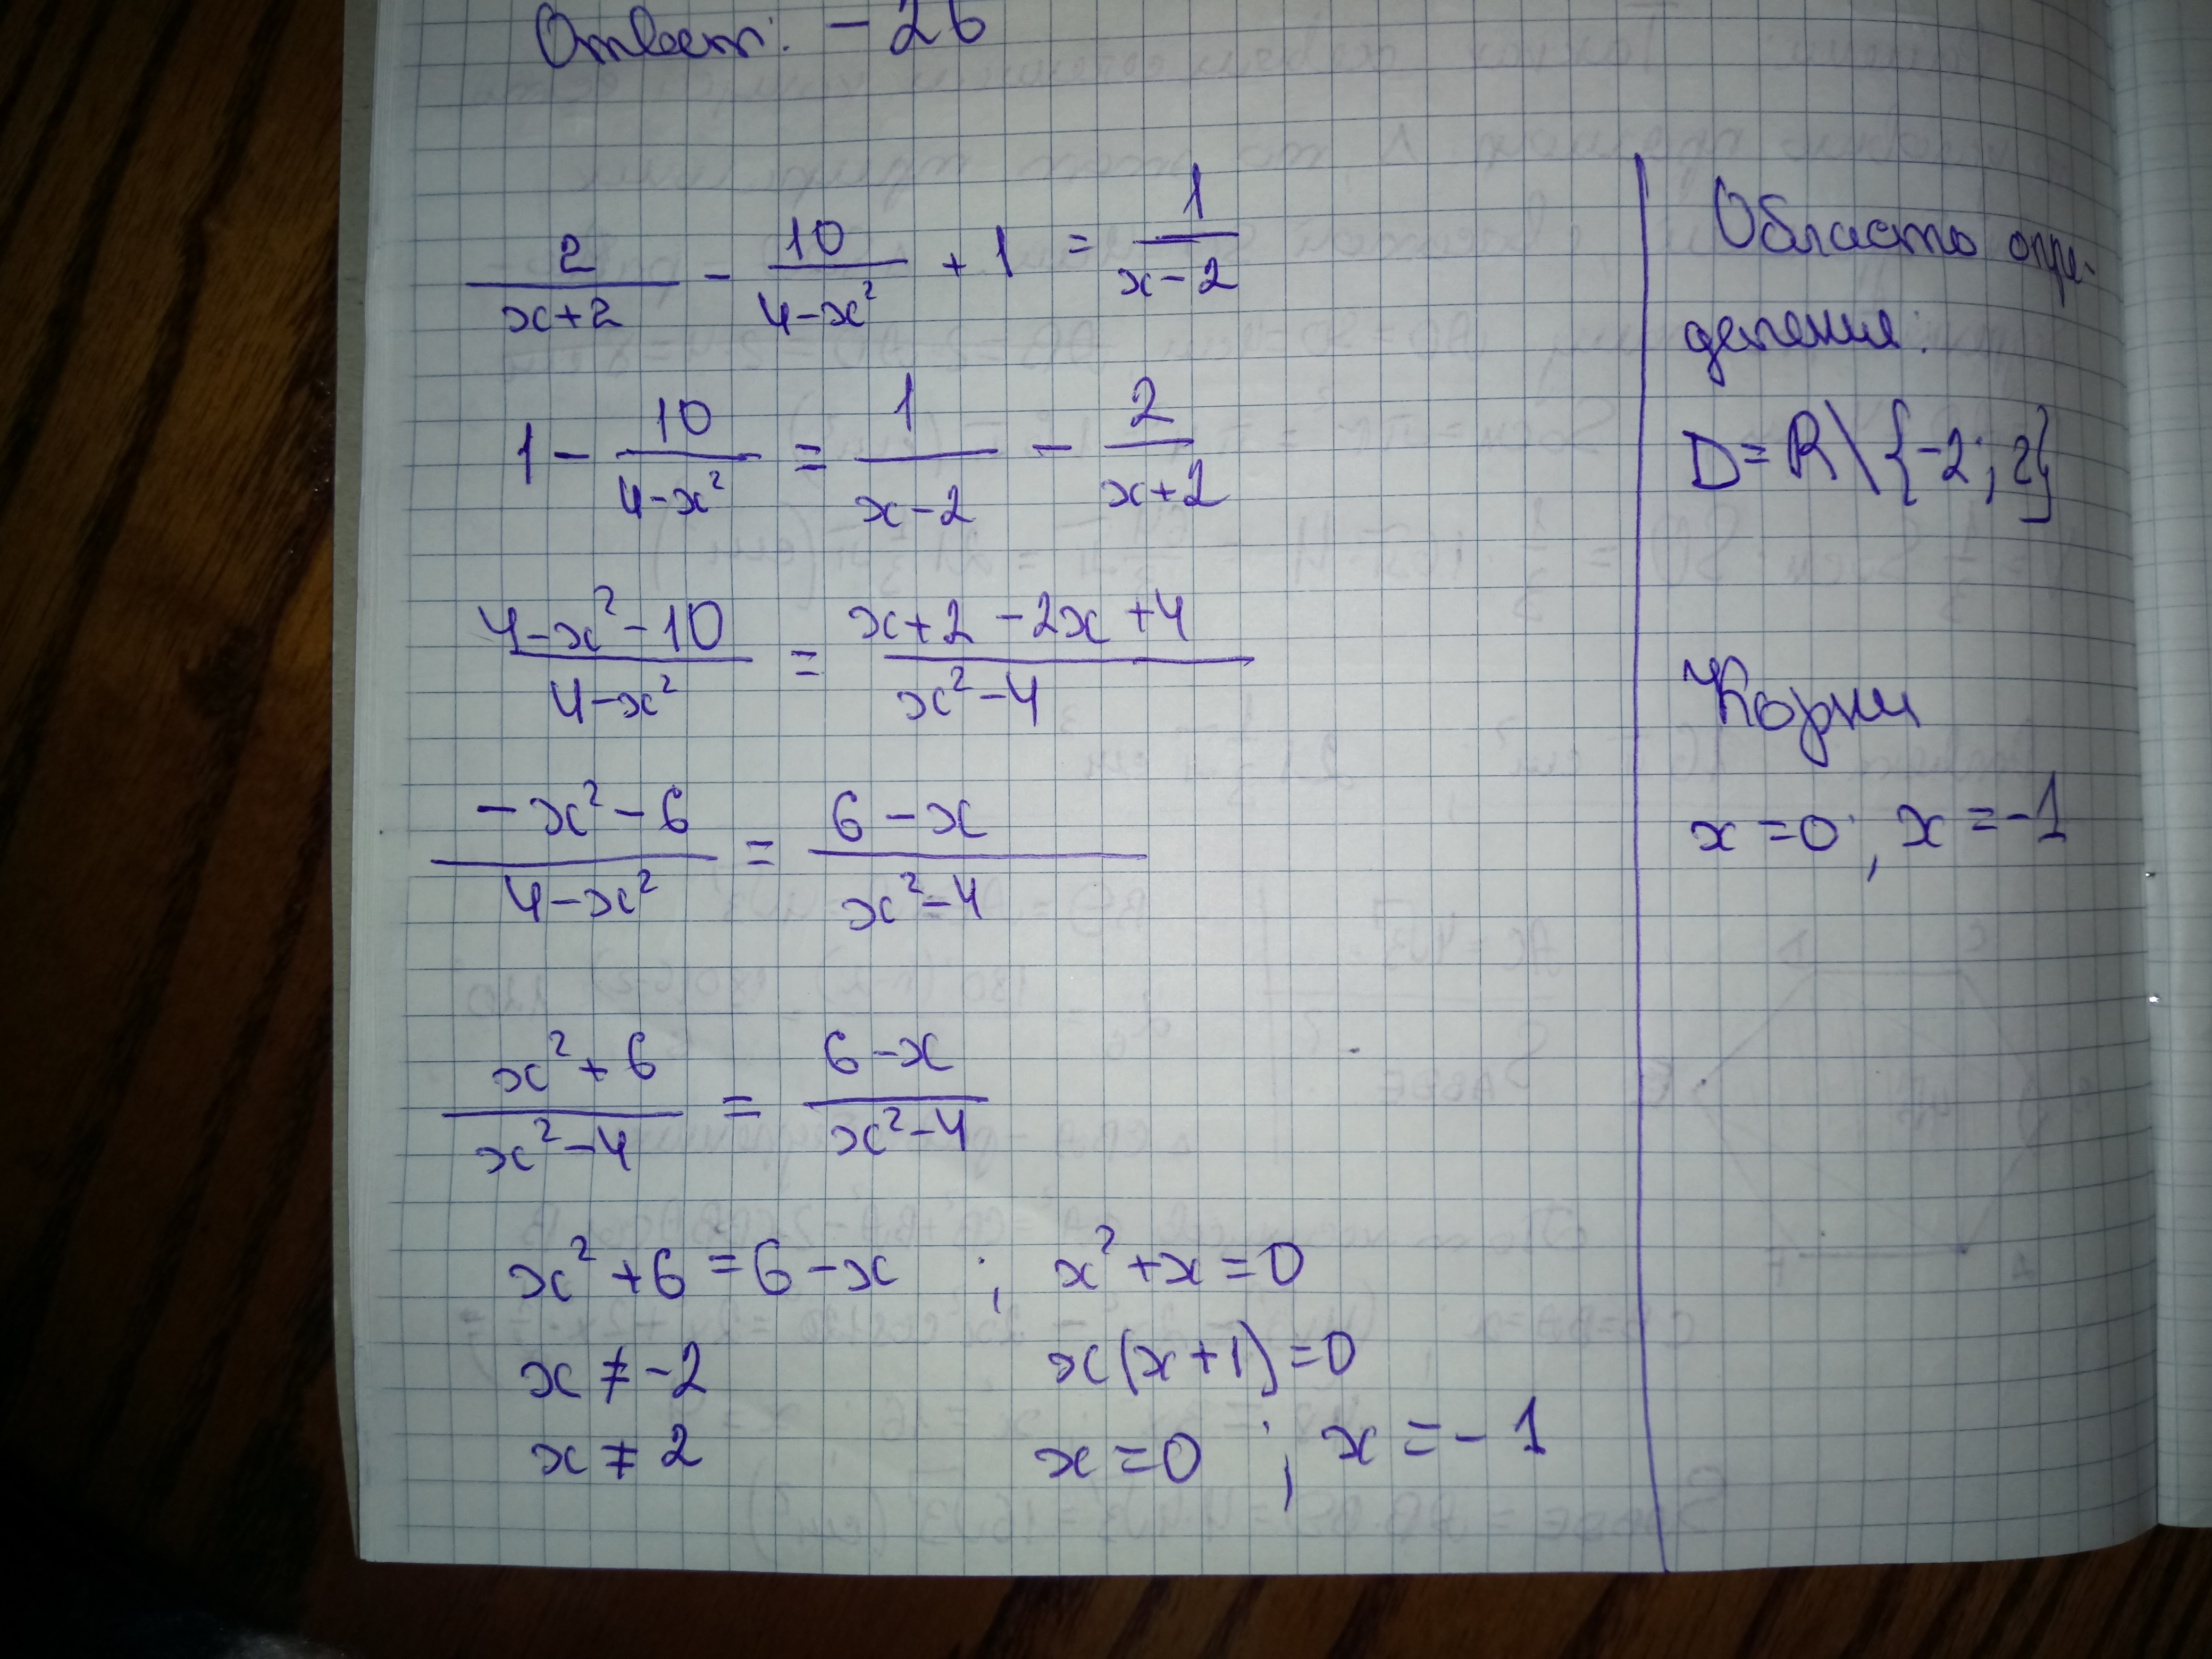 Ответ: -26
2/(x+2) - 10/(4-x²) + 1 = 1/(x-2)
1 - 10/(4-x²) = 1/(x-2) - 2/(x+2)
(4-x²-10)/(4-x²) = (x+2-2x+4)/(x²-4)
(-x²-6)/(4-x²) = (6-x)/(x²-4)
(x²+6)/(x²-4) = (6-x)/(x²-4)
x²+6=6-x ; x²+x=0
x≠-2 x(x+1)=0
x≠2 x=0 ; x=-1
Область опре-
деления:
D=R\{-2; 2}
Корни
x=0; x=-1